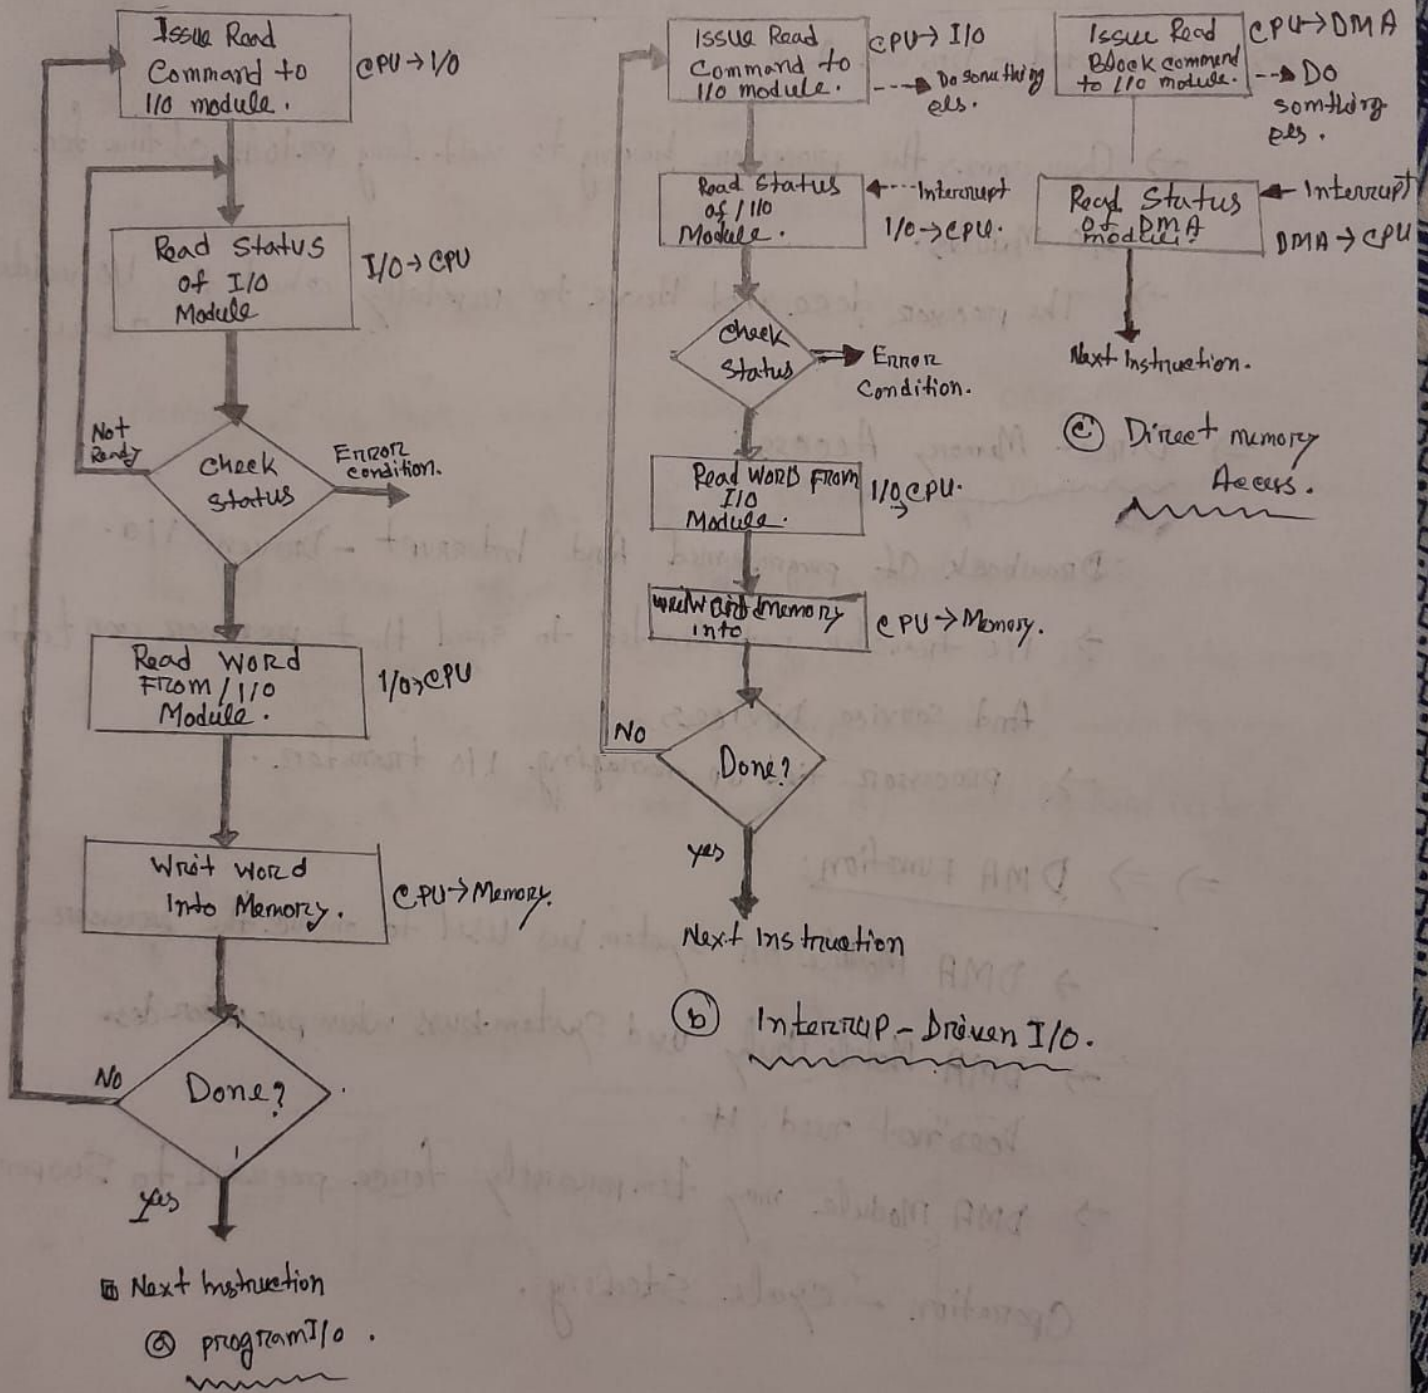 Issue Read
Command to
I/O module.
CPU→I/O
Read Status
of I/O
Module
I/O→CPU
Check
Status
Not
Ready
Error
condition.
Read Word
From/I/O
Module.
I/O→CPU
Writ Word
Into Memory.
CPU→Memory.
Done?
No
Yes
Next Instruction
ⓐ program I/O.
Issue Read
Command to
I/O module.
CPU→I/O
Do something
els.
Read Status
of/I/O
Module.
Interrupt
I/O→CPU.
Check
Status
Error
Condition.
Read Word From
I/O
Module.
I/O→CPU.
Memory
into
CPU→Memory.
Done?
No
Yes
Next Instruction
ⓑ Interrup-Driven I/O.
Issue Read
Block command
to I/O module.
CPU→DMA
Do
somthing
els.
Read Status
of DMA
Interrupt
DMA→CPU
Next Instruction.
ⓒ Direct memory
Access.